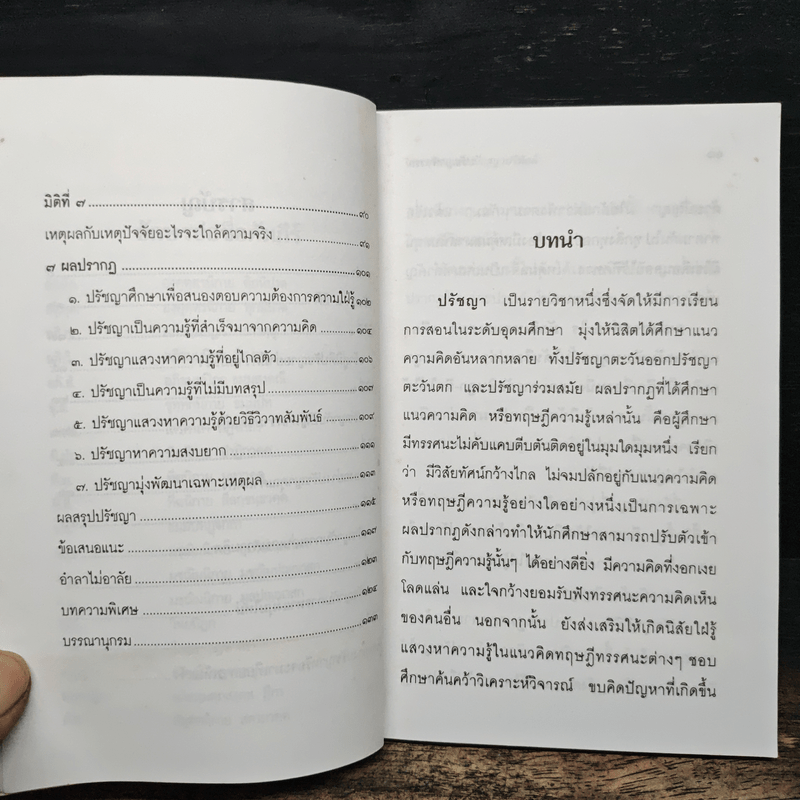 มิติที่ ๗ ........ ๙๐
เหตุผลกับเหตุปัจจัยอะไรจะใกล้ความจริง ........ ๙๑
๗ ผลปรากฏ ........ ๑๐๑
๑. ปรัชญาศึกษาเพื่อสนองตอบความต้องการความใฝ่รู้ ๑๐๒
๒. ปรัชญาเป็นความรู้ที่สำเร็จมาจากความคิด ........ ๑๐๔
๓. ปรัชญาแสวงหาความรู้ที่อยู่ไกลตัว ........ ๑๐๖
๔. ปรัชญาเป็นความรู้ที่ไม่มีบทสรุป ........ ๑๐๗
๕. ปรัชญาแสวงหาความรู้ด้วยวิธีวิวาทสัมพันธ์ ........ ๑๐๙
๖. ปรัชญาหาความสงบยาก ........ ๑๑๑
๗. ปรัชญามุ่งพัฒนาเฉพาะเหตุผล ........ ๑๑๓
ผลสรุปปรัชญา ........ ๑๑๕
ข้อเสนอแนะ ........ ๑๑๗
อำลาไม่อาลัย ........ ๑๒๓
บทความพิเศษ ........ ๑๒๔
บรรณานุกรม ........ ๑๓๓
บทนำ
ปรัชญา เป็นรายวิชาหนึ่งซึ่งจัดให้มีการเรียน
การสอนในระดับอุดมศึกษา มุ่งให้นิสิตได้ศึกษาแนว
ความคิดอันหลากหลาย ทั้งปรัชญาตะวันออกปรัชญา
ตะวันตก และปรัชญาร่วมสมัย ผลปรากฏที่ได้ศึกษา
แนวความคิด หรือทฤษฎีความรู้เหล่านั้น คือผู้ศึกษา
มีทรรศนะไม่คับแคบตีบตันติดอยู่ในมุมใดมุมหนึ่ง เรียก
ว่า มีวิสัยทัศน์กว้างไกล ไม่จมปลักอยู่กับแนวความคิด
หรือทฤษฎีความรู้อย่างใดอย่างหนึ่งเป็นการเฉพาะ
ผลปรากฏดังกล่าวทำให้นักศึกษาสามารถปรับตัวเข้า
กับทฤษฎีความรู้นั้นๆ ได้อย่างดียิ่ง มีความคิดที่งอกเงย
โลดแล่น และใจกว้างยอมรับฟังทรรศนะความคิดเห็น
ของคนอื่น นอกจากนั้น ยังส่งเสริมให้เกิดนิสัยใฝ่รู้
แสวงหาความรู้ในแนวคิดทฤษฎีทรรศนะต่างๆ ชอบ
ศึกษาค้นคว้าวิเคราะห์วิจารณ์ ขบคิดปัญหาที่เกิดขึ้น